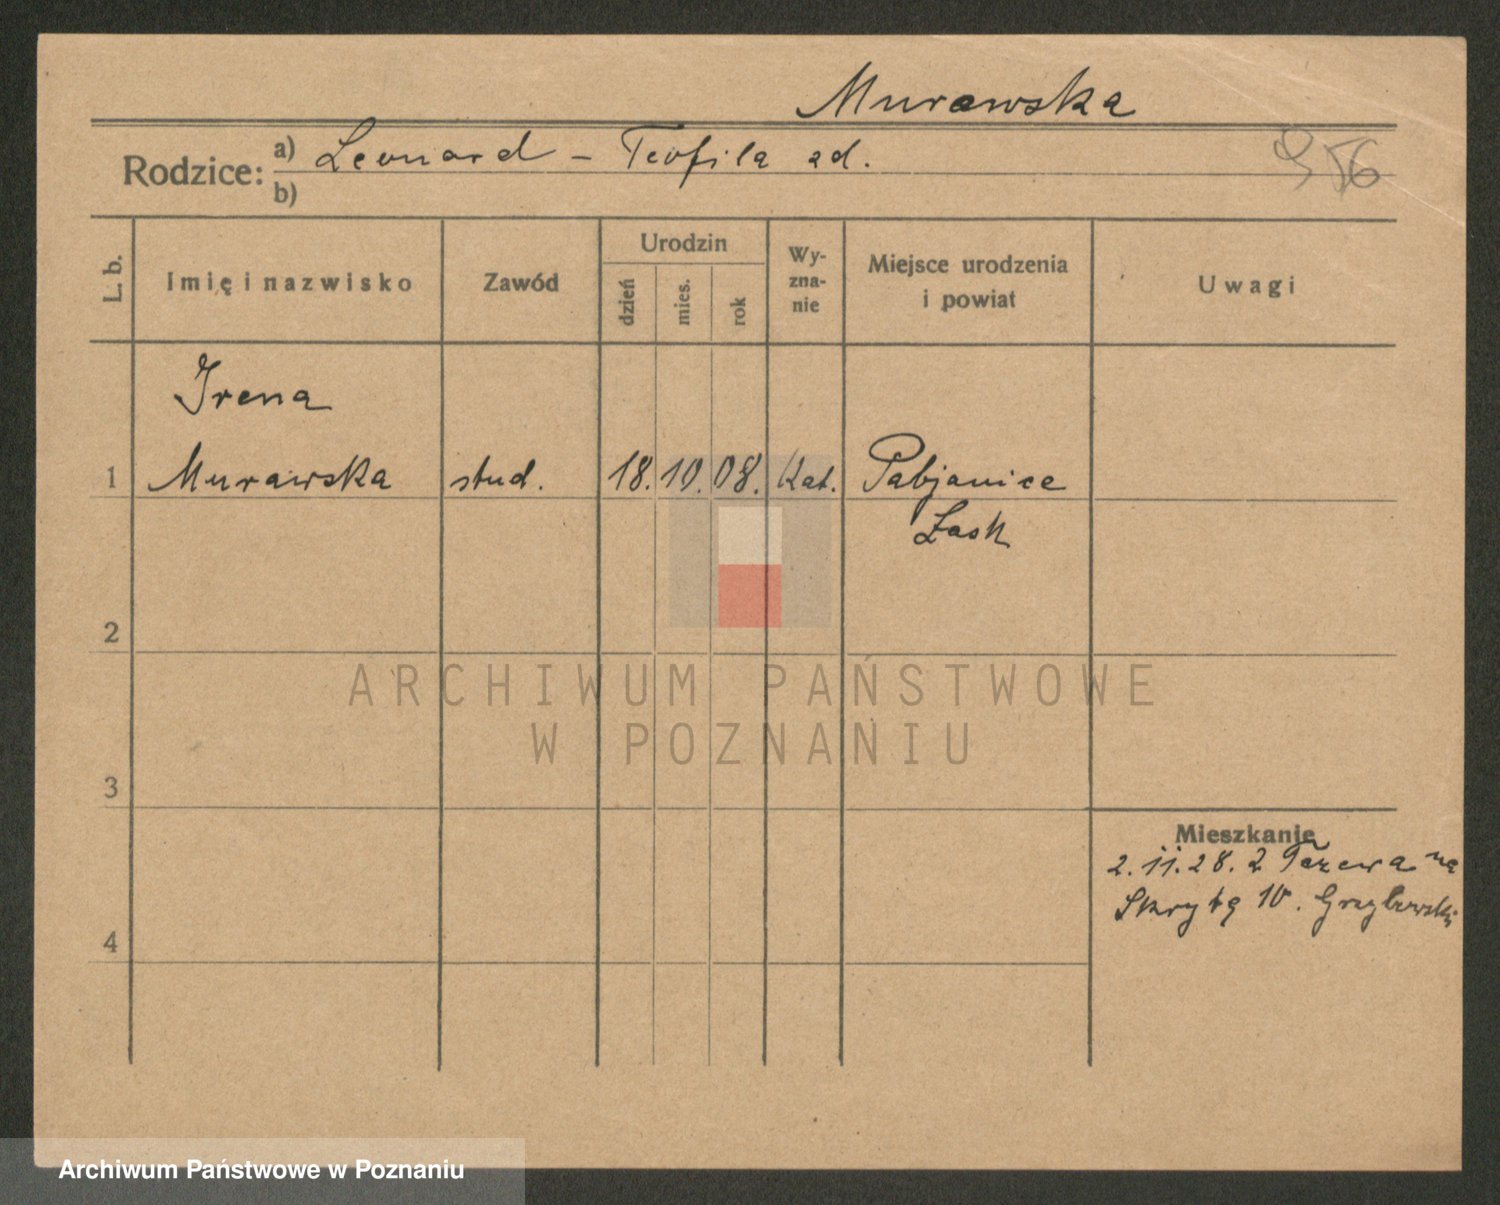 Murawska
Rodzice: a) Leonard – Teofila ad.
b)
956
L. b.
Imię i nazwisko
Zawód
Urodzin
dzień
mies.
rok
Wy-
zna-
nie
Miejsce urodzenia
i powiat
Uwagi
Irena
1 Murawska stud. 18. 10. 08. Kat. Pabjanice
Łask
2
ARCHIWUM PAŃSTWOWE
W POZNANIU
3
Mieszkanie
2.11.28. z na
4
Skrytą 10. Grzybowski
Archiwum Państwowe w Poznaniu